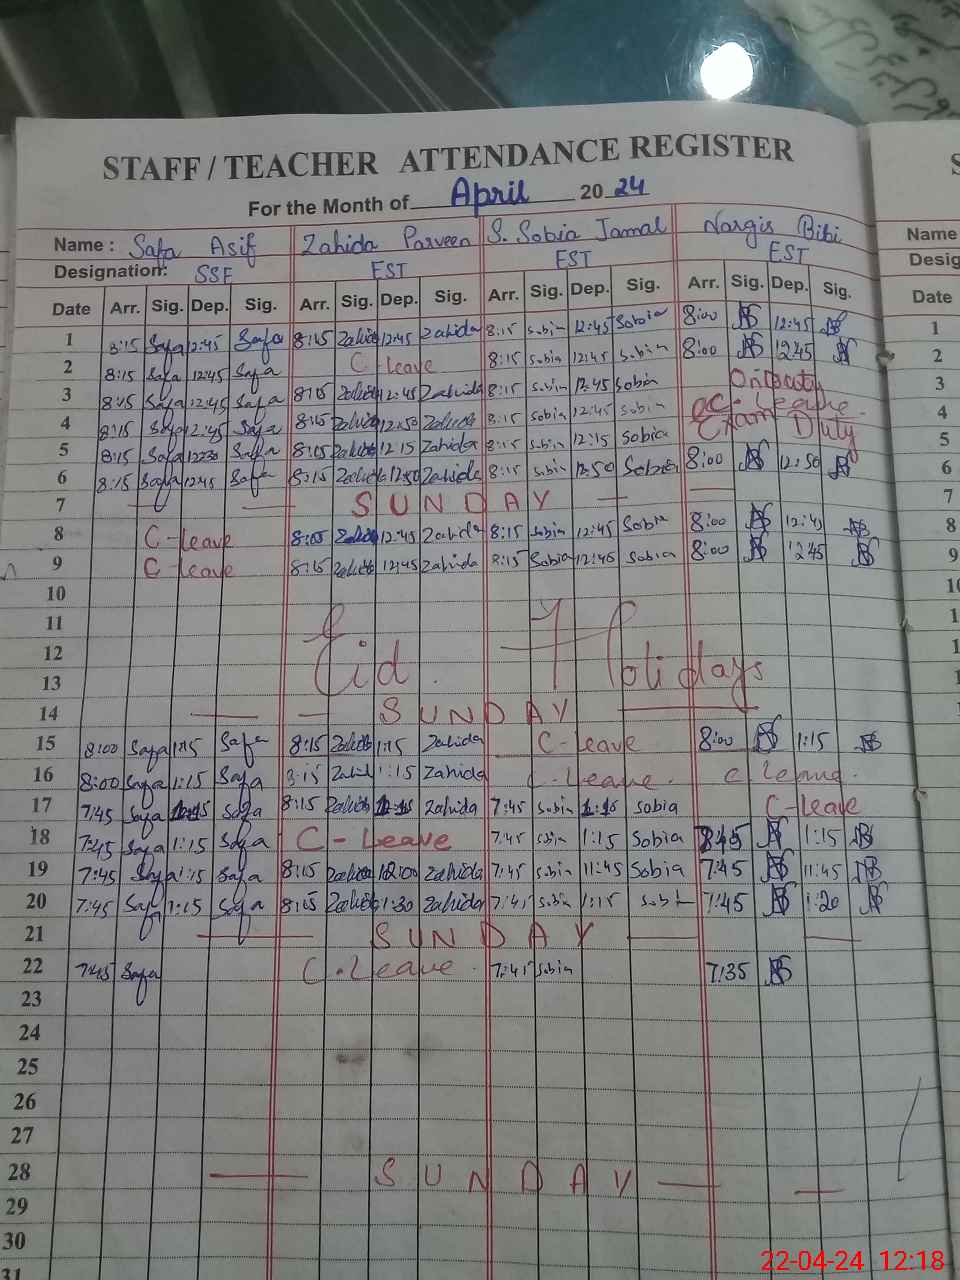 STAFF / TEACHER ATTENDANCE REGISTER
For the Month of April 20 24
Name : Safa Asif Zahida Parveen S. Sobia Jamal Nargis Bibi
Name
Designation: SSE EST EST EST
Desig
Date Arr. Sig. Dep. Sig. Arr. Sig. Dep. Sig. Arr. Sig. Dep. Sig. Arr. Sig. Dep. Sig.
Date
1 8:15 Safa 2:45 Safa 8:15 Zahida 12:45 Zahida 8:15 Sobia 12:45 Sobia 8:00 12:45 1
2 8:15 Safa 12:45 Safa C-leave 8:15 Sobia 12:45 Sobia 8:00 12 45 2
3 8:15 Safa 12:45 Safa 8:05 Zahida 12:45 Zahida 8:15 Sobia 12:45 Sobia On Duty 3
4 8:15 Safa 12:45 Safa Zahida 12:50 Zahida 8:15 Sobia 12:45 Sobia C-Leave. 4
5 8:15 Safa 12:30 Safa 8:05 Zahida 12 15 Zahida 8:15 Sobia 12:15 Sobia Exam Duty 5
6 8:15 Safa 12:45 Safa 8:15 Zahida 12:50 Zahida 8:15 Sobia 12:50 Sobia 8:00 12:50 6
7 SUNDAY 7
8 C-leave 8:05 Zahida 12:45 Zahida 8:15 Sobia 12:45 Sobia 8:00 12:45 8
9 C-leave 8:15 Zahida 12:45 Zahida 8:15 Sobia 12:45 Sobia 8:00 12 45 9
10
11
12 Eid. Holidays
13
14 SUNDAY
15 8:00 Safa 1:15 Safa 8:15 Zahida 1:15 Zahida C-leave 8:00 1:15
16 8:00 Safa 1:15 Safa 8:15 Zahid 1:15 Zahida C-leave. C leave.
17 7:45 Safa Safa 8:15 Zahida Zahida 7:45 Sobia 1:15 Sobia C-Leave
18 7:45 Safa 1:15 Safa C-Leave 7:45 Sobia 1:15 Sobia 1:15
19 7:45 Safa 1:15 Safa 8:15 Zahida 12:00 Zahida 7:45 Sobia 11:45 Sobia 7:45 11:45
20 7:45 Safa 1:15 Safa 8:05 Zahida 1:30 Zahida 7:45 Sobia 1:15 Sobia 7:45 1:20
21 SUNDAY
22 7:45 Safa C-Leave. 7:45 Sobia 7:35
23
24
25
26
27
28 SUNDAY
29
30
31
22-04-24 12:18